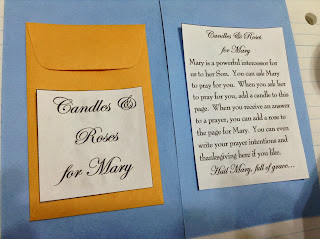 Candles &
Roses
for Mary
Candles & Roses
for Mary
Mary is a powerful intercessor for
us to her Son. You can ask Mary
to pray for you. When you ask her
to pray for you, add a candle to this
page. When you receive an answer
to a prayer, you can add a rose to
the page for Mary. You can even
write your prayer intentions and
thanksgiving here if you like.
Hail Mary, full of grace...